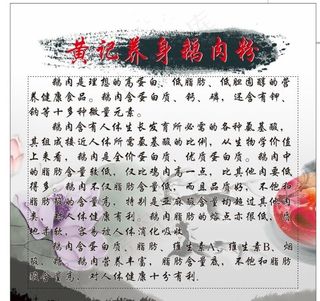 黄记养身鹅肉粉
鹅肉是理想的高蛋白、低脂肪、低胆固醇的营
养健康食品。鹅肉含蛋白质、钙、磷，还含有钾、
钠等十多种微量元素。
鹅肉含有人体生长发育所必需的各种氨基酸，
其组成接近人体所需氨基酸的比例，从生物学价值
上来看，鹅肉是全价蛋白质、优质蛋白质。鹅肉中
的脂肪含量较低，仅比鸡肉高一点，比其他肉要低
得多。鹅肉不仅脂肪含量低，而且品质好，不饱和
脂肪酸的含量高，特别是亚麻酸含量均超过其他肉
类，对人体健康有利。鹅肉脂肪的熔点亦很低，质
地柔软，容易被人体消化吸收。
鹅肉含蛋白质，脂肪、维生素A、维生素B、烟
酸、糖。鹅肉营养丰富，脂肪含量底，不饱和脂肪
酸含量高，对人体健康十分有利。